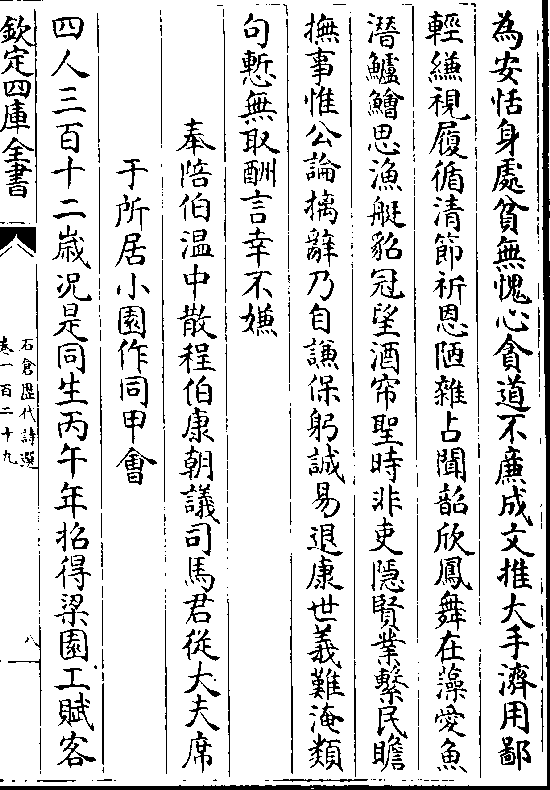 為安恬身處貧無愧心貪道不亷成文推大手濟用鄙
輕縑視履循清節祈恩陋雜占聞韶欣鳳舞在藻愛魚
潛鱸鱠思漁艇貂冠望酒帘聖時非吏隱賢業繫民瞻
撫事惟公論摛辭乃自謙保躬誠易退康世義難淹類
句慙無取酬言幸不嫌
奉陪伯温中散程伯康朝議司馬君從大夫席
于所居小園作同甲㑹
四人三百十二嵗况是同生丙午年招得梁園工賦客
欽定四庫全書
石倉歴代詩選
卷一百二十九
八